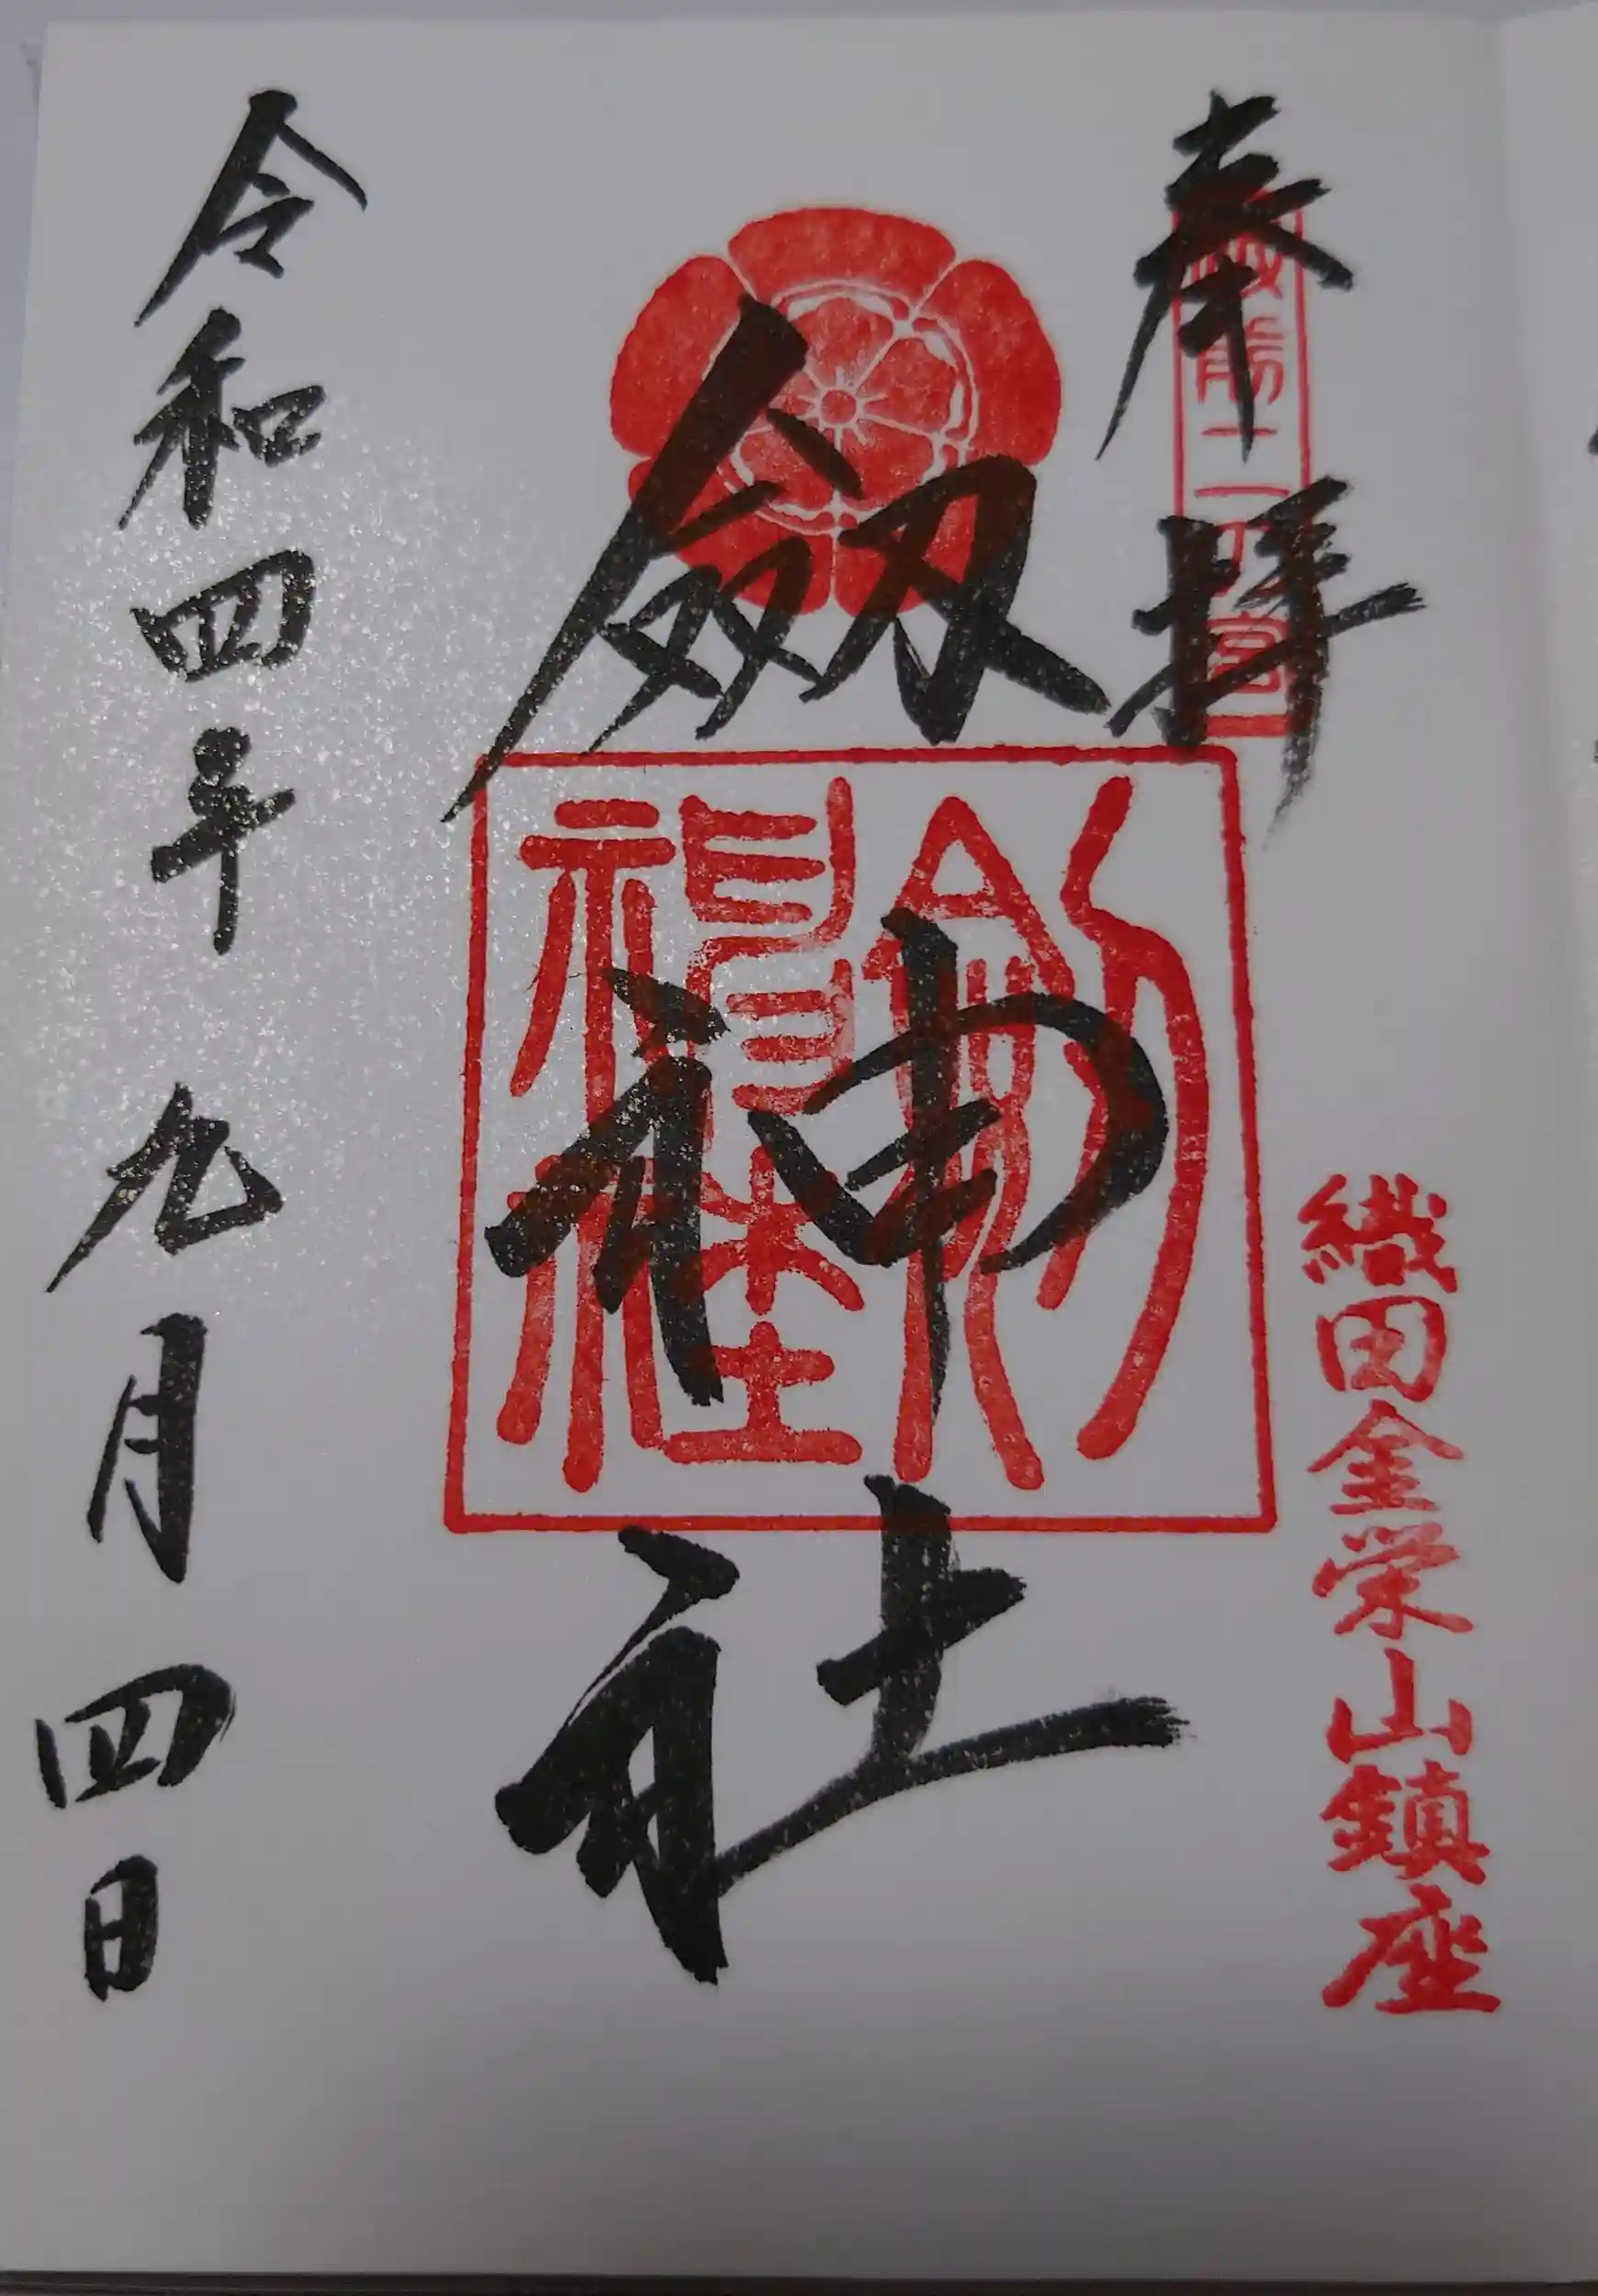 奉拝
越前二の宮
織田金栄山鎮座
劔神社
劔神社
令和四年九月四日